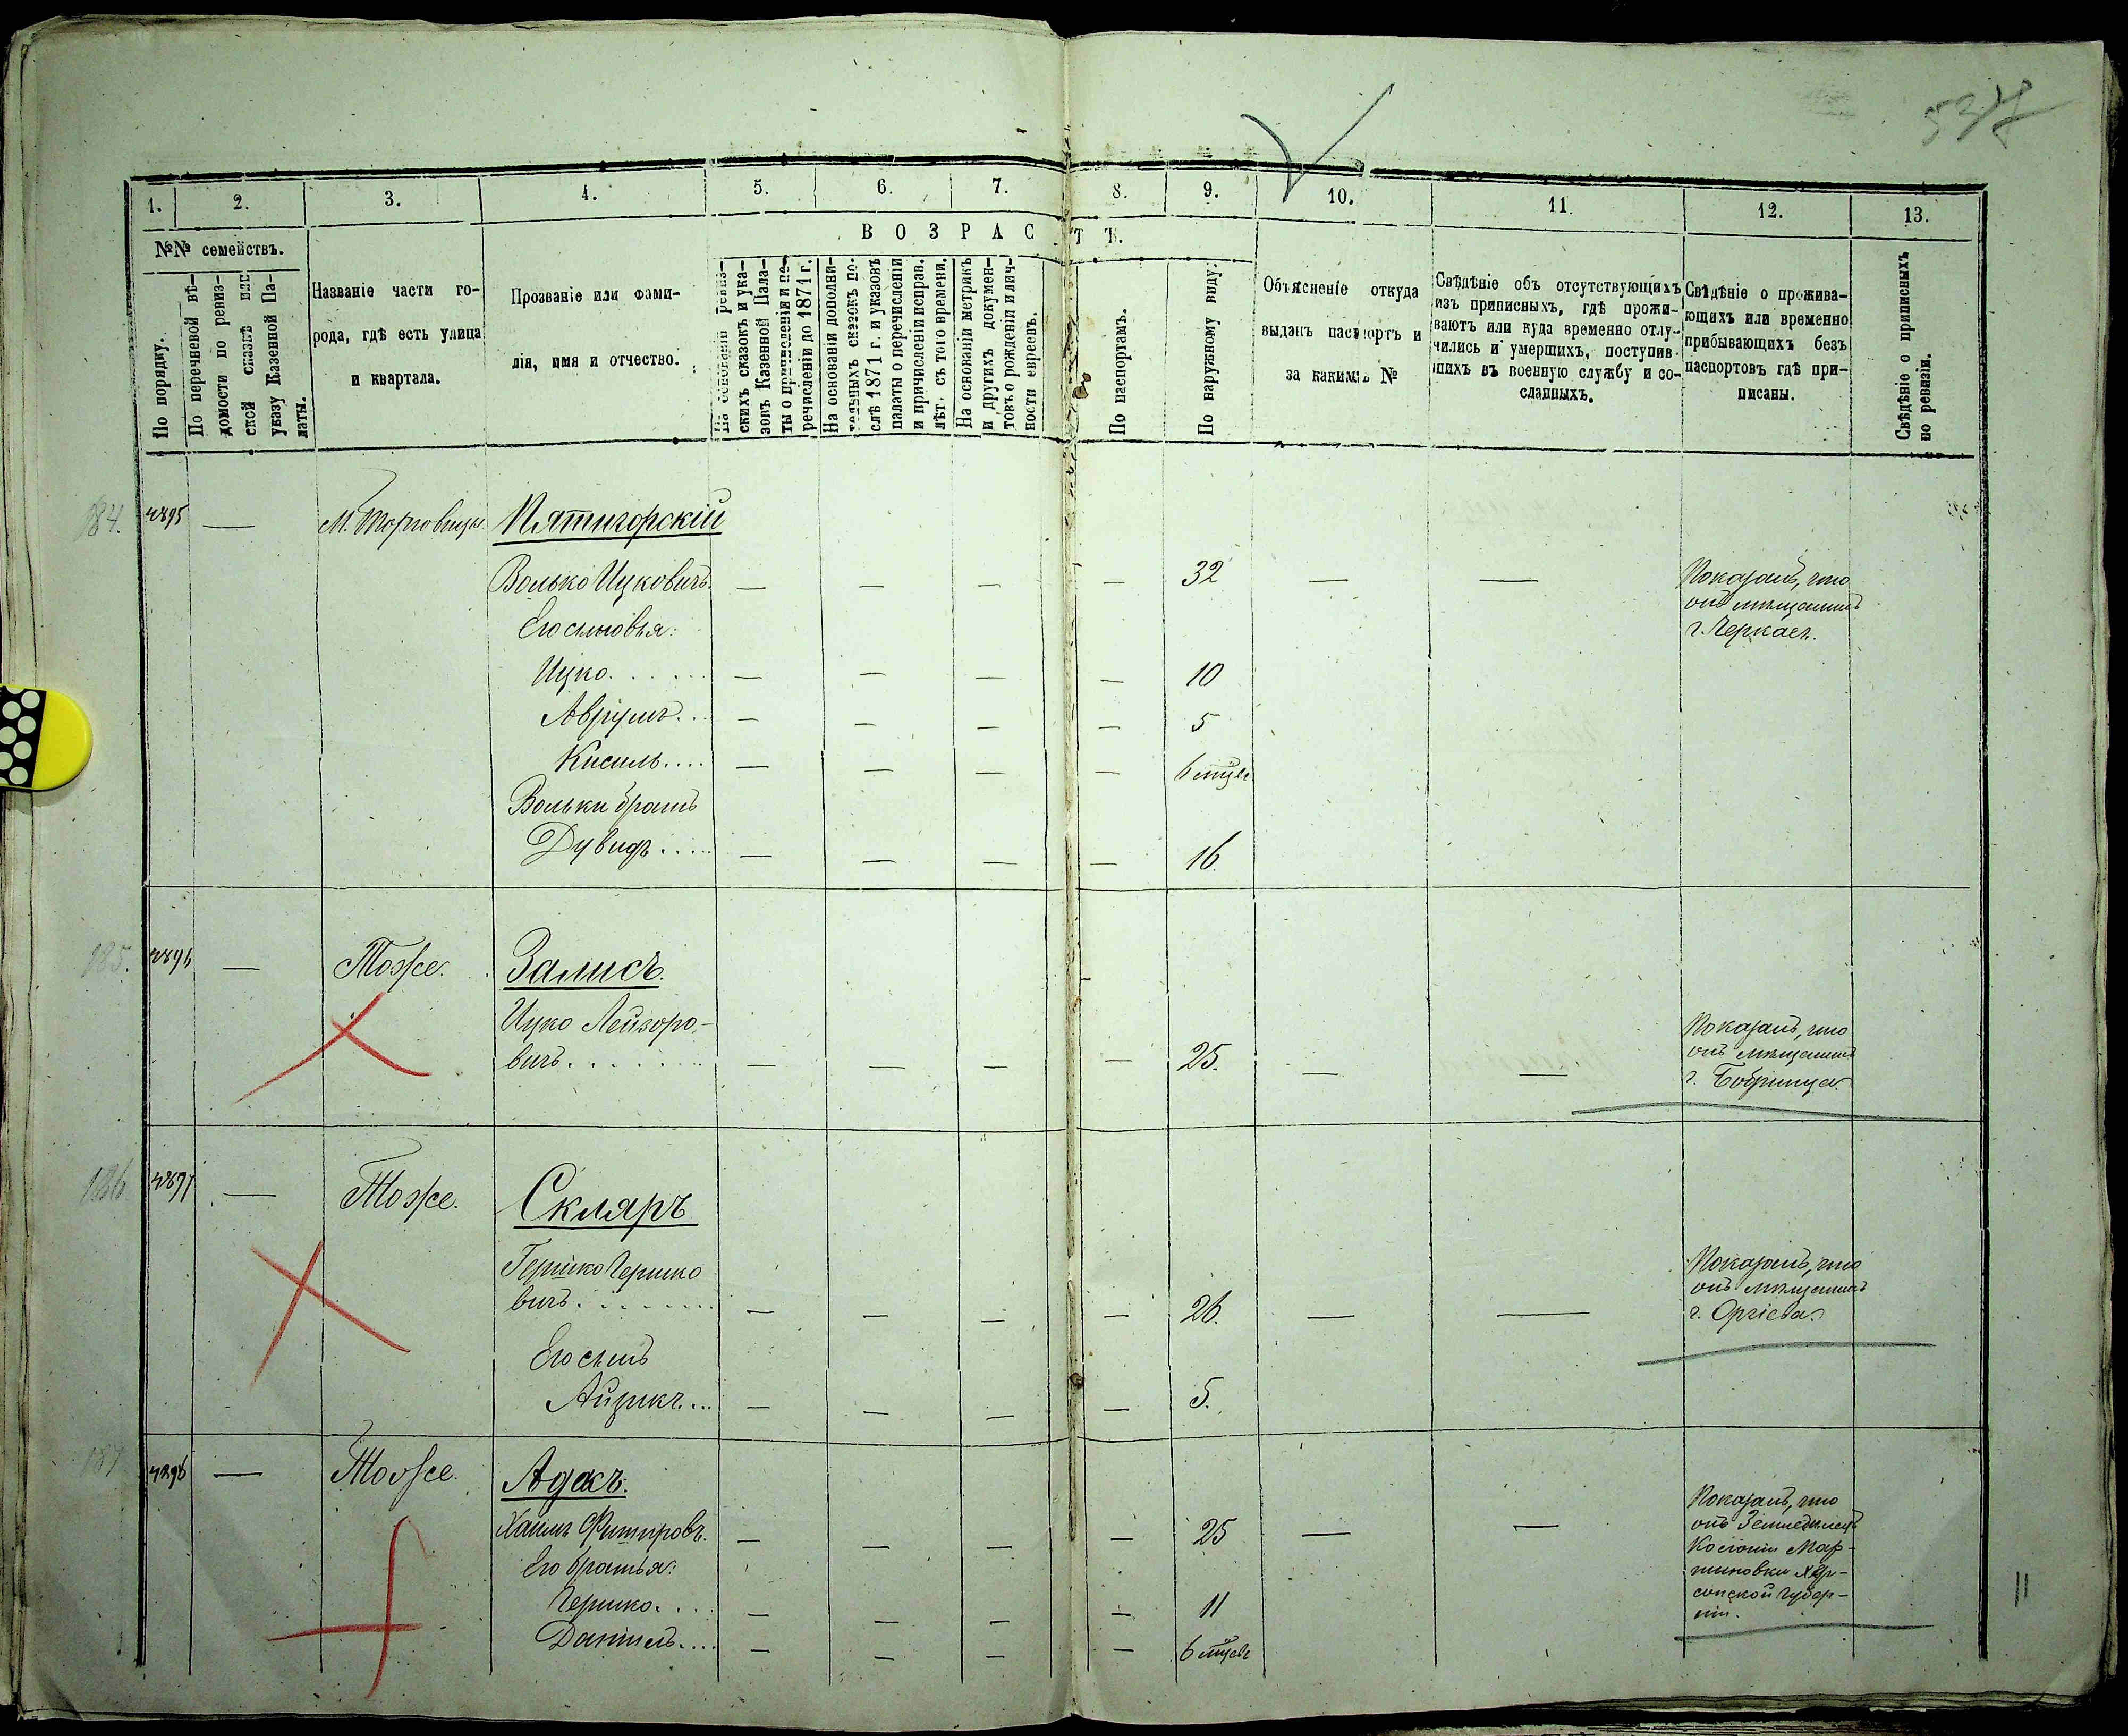 537
1. 2. 3. 4. 5. 6. 7. 8. 9. 10. 11. 12. 13.
№№ семействъ.
По порядку.
По перечневой вѣ-
домости по ревиз-
ской сказкѣ или
указу Казенной Па-
латы.
Названіе части го-
рода, гдѣ есть улица
и квартала.
Прозваніе или фами-
лія, имя и отчество.
ВОЗРАСТЪ.
На основаніи ревиз-
скихъ сказокъ и ука-
зовъ Казенной Пала-
ты о причисленіи и пе-
речисленіи до 1871 г.
На основаніи дополни-
тельныхъ сказокъ по-
слѣ 1871 г. и указовъ
палаты о перечисленіи
и причисленіи исправ.
лѣт. съ того времени.
На основаніи метрикъ
и другихъ докумен-
товъ о рожденіи и лич-
ности евреевъ.
По паспортамъ.
По наружному виду.
Объясненіе откуда
выданъ паспортъ и
за какимъ №
Свѣдѣніе объ отсутствующихъ
изъ приписныхъ, гдѣ прожи-
ваютъ или куда временно отлу-
чились и умершихъ, поступив-
шихъ въ военную службу и со-
сланныхъ.
Свѣдѣніе о прожива-
ющихъ или временно
прибывающихъ безъ
паспортовъ гдѣ при-
писаны.
Свѣдѣніе о приписныхъ
по ревизіи.
184. 4895 — М. Торговица Пятигорскій
Волько Ицковичъ. — — — — 32 — — Показалъ, что
онъ мѣщанинъ
г. Черкасъ.
Его сыновья:
Ицко..... — — — — 10
Аврумъ... — — — — 5
Кисиль.... — — — — 6 мцвъ
Вольки братъ
Дувидъ..... — — — — 16.
185. 4896 — Тоже. Залисъ.
Ицко Лейзоро-
вичъ....... — — — — 25. — — Показалъ, что
онъ мѣщанинъ
г. Бобринца.
186. 4897 — Тоже. Скляръ
Гершко Гершко
вичъ....... — — — — 26. — — Показалъ, что
онъ мѣщанинъ
г. Оргіева.
Его сынъ
Айзикъ... — — — — 5.
187 4898 — Тоже. Адасъ.
Хаимъ — — — — 25 — — Показалъ, что
онъ Земледѣлецъ
Колоніи Мар-
тиновки Хер-
сонской Губер-
ніи.
Его братья:
Гершко.... — — — — 11
Даніилъ.... — — — — 6 мцевъ